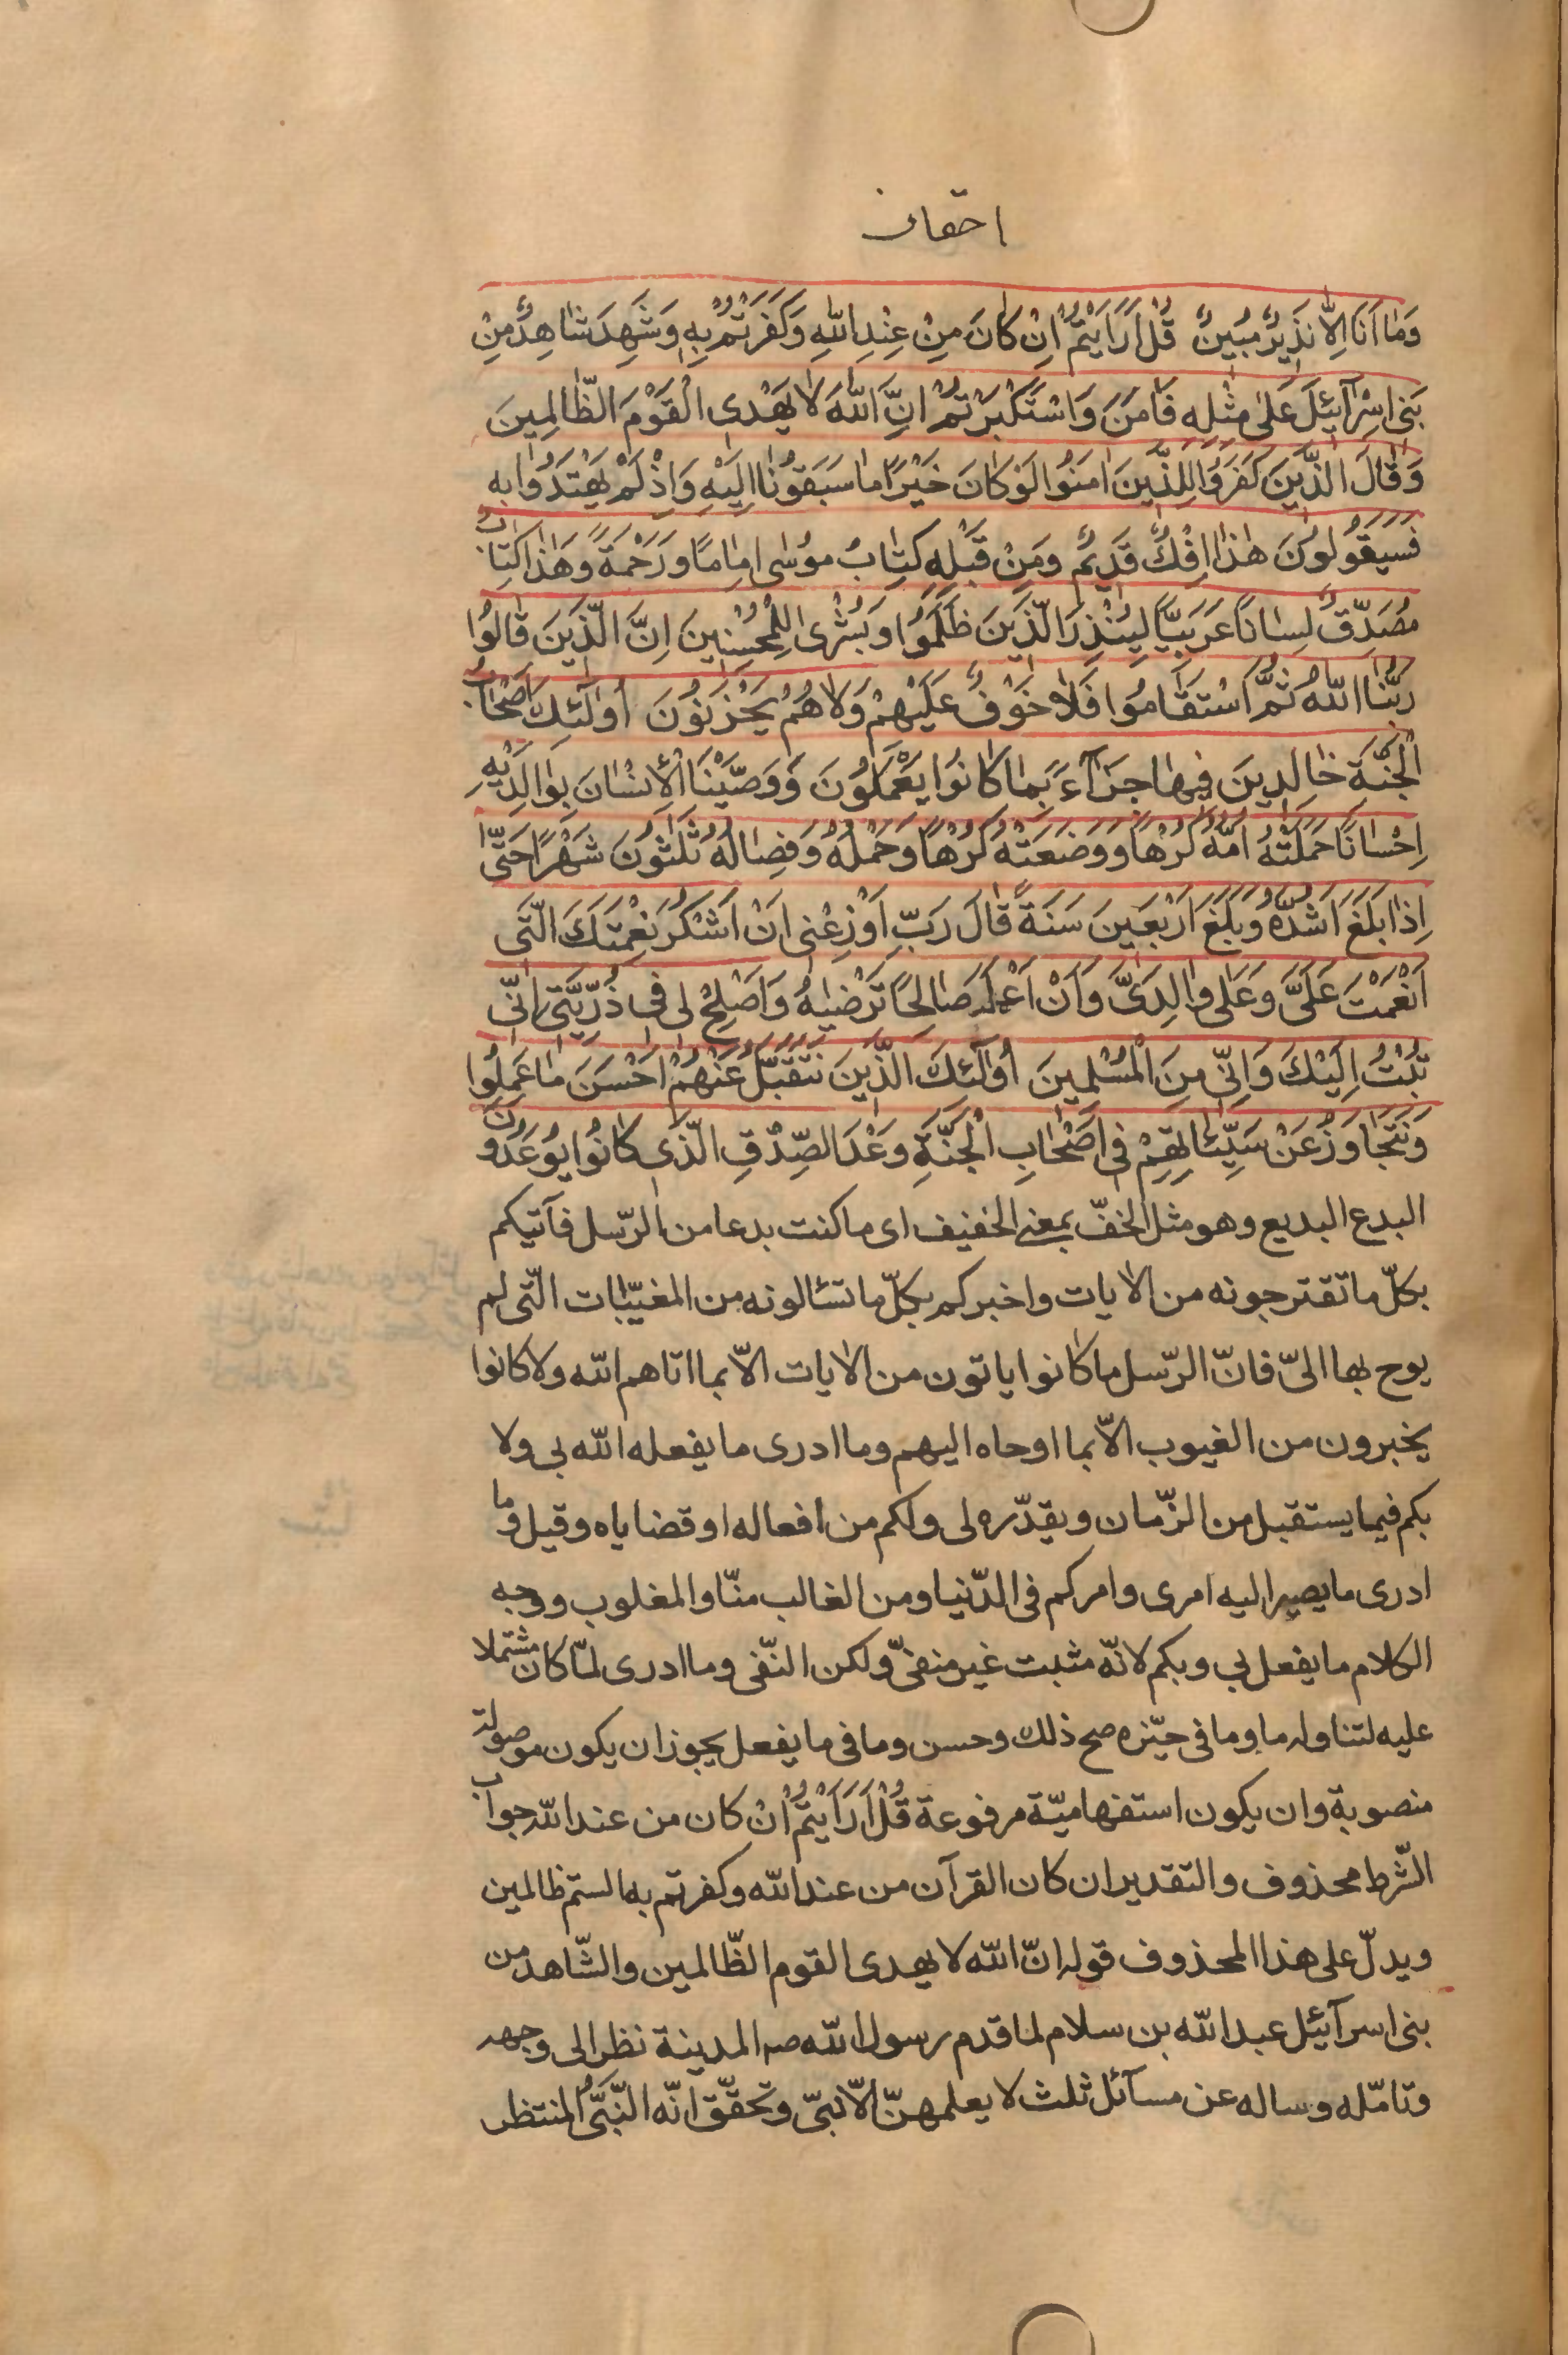 احقاف
وَمٰا اَنَا اِلّٰا نَذِيرٌ مُبِينٌ قُلْ اَرَاَيْتُمْ اِنْ كٰانَ مِنْ عِنْدِ اللّٰهِ وَكَفَرْتُمْ بِهٖ وَشَهِدَ شٰاهِدٌ مِنْ
بَنِى اِسْرٰآئِيلَ عَلىٰ مِثْلِهٖ فَاٰمَنَ وَاسْتَكْبَرْتُمْ اِنَّ اللّٰهَ لٰا يَهْدِى الْقَوْمَ الظّٰالِمِينَ
وَقٰالَ الَّذِينَ كَفَرُوا لِلَّذِينَ اٰمَنُوا لَوْ كٰانَ خَيْرًا مٰا سَبَقُونٰا اِلَيْهِ وَاِذْ لَمْ يَهْتَدُوا بِهٖ
فَسَيَقُولُونَ هٰذٰا اِفْكٌ قَدِيمٌ وَمِنْ قَبْلِهٖ كِتٰابُ مُوسٰى اِمٰامًا وَرَحْمَةً وَهٰذٰا كِتٰابٌ
مُصَدِّقٌ لِسٰانًا عَرَبِيًّا لِيُنْذِرَ الَّذِينَ ظَلَمُوا وَبُشْرٰى لِلْمُحْسِنِينَ اِنَّ الَّذِينَ قٰالُوا
رَبُّنَا اللّٰهُ ثُمَّ اسْتَقٰامُوا فَلٰا خَوْفٌ عَلَيْهِمْ وَلٰا هُمْ يَحْزَنُونَ اُولٰٓئِكَ اَصْحٰابُ
الْجَنَّةِ خٰالِدِينَ فِيهٰا جَزٰآءً بِمٰا كٰانُوا يَعْمَلُونَ وَوَصَّيْنَا الْاِنْسٰانَ بِوٰالِدَيْهِ
اِحْسٰانًا حَمَلَتْهُ اُمُّهُ كُرْهًا وَوَضَعَتْهُ كُرْهًا وَحَمْلُهُ وَفِصٰالُهُ ثَلٰثُونَ شَهْرًا حَتّٰى
اِذٰا بَلَغَ اَشُدَّهُ وَبَلَغَ اَرْبَعِينَ سَنَةً قٰالَ رَبِّ اَوْزِعْنِى اَنْ اَشْكُرَ نِعْمَتَكَ الَّتِى
اَنْعَمْتَ عَلَىَّ وَعَلىٰ وٰالِدَىَّ وَاَنْ اَعْمَلَ صٰالِحًا تَرْضٰيهُ وَاَصْلِحْ لِى فِى ذُرِّيَّتِى اِنِّى
تُبْتُ اِلَيْكَ وَاِنِّى مِنَ الْمُسْلِمِينَ اُولٰٓئِكَ الَّذِينَ نَتَقَبَّلُ عَنْهُمْ اَحْسَنَ مٰا عَمِلُوا
وَنَتَجٰاوَزُ عَنْ سَيِّئٰاتِهِمْ فِى اَصْحٰابِ الْجَنَّةِ وَعْدَ الصِّدْقِ الَّذِى كٰانُوا يُوعَدُونَ
البدع البديع وهو مثل الخفّ بمعنى الخفيف اى ما كنت بدعا من الرّسل فآتيكم
بكلّ ما تقترحونه من الاٰيات واخبركم بكلّ ما تسئالونه من المغيّبات الّتى لم
يوح بها الىّ فانّ الرّسل ما كانوا ياتون من الاٰيات الاّ بما اتاهم الله ولا كانوا
يخبرون من الغيوب الاّ بما اوحاه اليهم وما ادرى ما يفعله الله بى ولا
بكم فيما يستقبل من الزّمان ويقدّره لى ولكم من افعاله او قضاياه وقيل وما
ادرى ما يصير اليه امرى وامركم فى الدّنيا ومن الغالب منّا والمغلوب ووجه
الكلام ما يفعل بى وبكم لانّه مثبت غير منفىّ ولكن النّفى وما ادرى لمّا كان مشتملا
عليه لتناوله ما وما فى حيّزه صح ذلك وحسن وما فى ما يفعل يجوز ان يكون موصولة
منصوبة وان يكون استفهاميّة مرفوعة قُلْ اَرَاَيْتُمْ اِنْ كان من عند الله جواب
الشّرط محذوف والتقدير ان كان القرآن من عند الله وكفرتم به الستم ظالمين
ويدلّ على هذا المحذوف قوله انّ الله لا يهدى القوم الظّالمين والشّاهد من
بنى اسرآئيل عبد الله بن سلام لما قدم رسول الله صه المدينة نظر الى وجهه
وتامّله وساله عن مسآئل ثلث لا يعلمهنّ الاّ نبىّ وتحقّق انّه النّبىُّ المنتظر